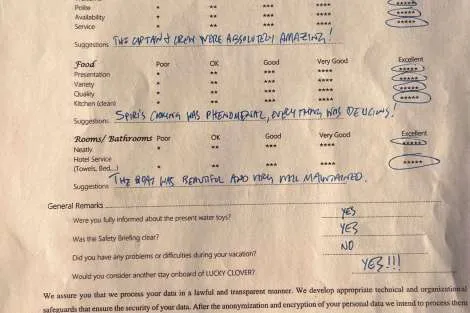 Polite * ** *** **** *****
Availability * ** *** **** *****
Service * ** *** **** *****
Suggestions THE CAPTAIN & CREW WERE ABSOLUTELY AMAZING!
Food Poor OK Good Very Good Excellent
Presentation * ** *** **** *****
Variety * ** *** **** *****
Quality * ** *** **** *****
Kitchen (clean) * ** *** **** *****
Suggestions SPIRI'S COOKING WAS PHENOMENAL, EVERYTHING WAS DELICIOUS!
Rooms/ Bathrooms Poor OK Good Very Good Excellent
Neatly. * ** *** **** *****
Hotel Service
(Towels, Bed,..) * ** *** **** *****
Suggestions THE BOAT WAS BEAUTIFUL AND VERY WELL MAINTAINED.
General Remarks
Were you fully informed about the present water toys? YES
Was the Safety Briefing clear? YES
Did you have any problems or difficulties during your vacation? NO
Would you consider another stay onboard of LUCKY CLOVER? YES!!!
We assure you that we process your data in a lawful and transparent manner. We develop appropriate technical and organizational
safeguards that ensure the security of your data. After the anonymization and encryption of your personal data we intend to process them